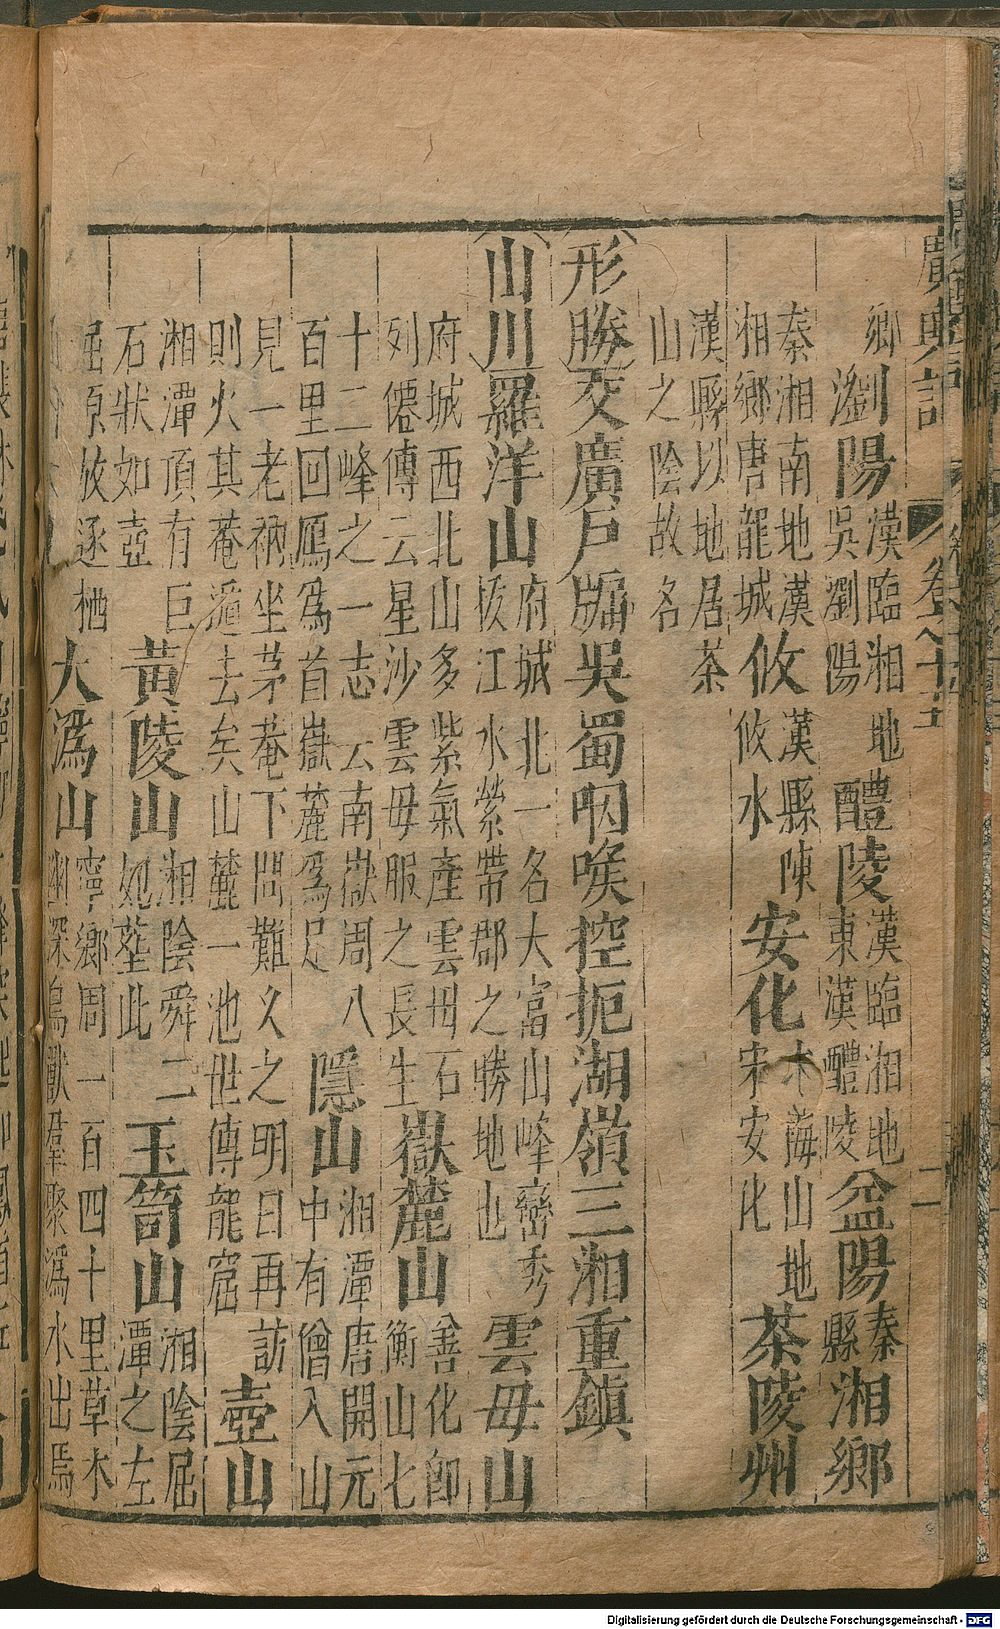 廣輿記 卷十五 二
鄉 瀏陽 漢臨湘地 吳瀏陽 醴陵 漢臨湘地 東漢醴陵 益陽 秦縣 湘鄉
秦湘南地漢湘鄉唐龍城 攸 漢縣陳攸水 安化 本梅山地宋安化 茶陵州
漢縣以地居茶山之陰故名
形勝 交廣戶牖吳蜀咽喉控扼湖嶺三湘重鎮
山川 羅洋山 府城北一名大富山峰巒秀拔江水縈帶郡之勝地也 雲母山
府城西北山多紫氣產雲母石列僊傳云星沙雲母服之長生 嶽麓山 善化即衡山七
十二峰之一志云南嶽周八百里回鴈為首嶽麓為足 隱山 湘潭唐開元中有僧入山
見一老衲坐茅菴下問難久之明日再訪則火其菴遁去矣山麓一池世傳龍窟 壺山
湘潭頂有巨石狀如壺 黃陵山 湘陰舜二妃塟此 玉笥山 湘陰屈潭之左
屈原放逐棲 大溈山 寧鄉周一百四十里草木幽深鳥獸羣聚溈水出焉
Digitalisierung gefördert durch die Deutsche Forschungsgemeinschaft - DFG